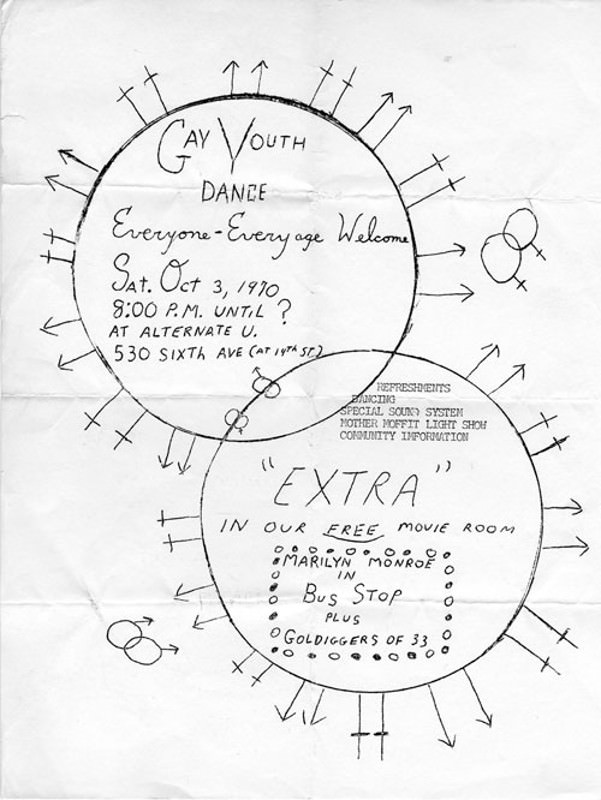 Gay Youth
Dance
Everyone-Every age Welcome
Sat. Oct 3, 1970
8:00 P.M. UNTIL ?
AT ALTERNATE U.
530 SIXTH AVE (AT 14TH ST.)
REFRESHMENTS
DANCING
SPECIAL SOUND SYSTEM
MOTHER MOFFIT LIGHT SHOW
COMMUNITY IMFORMATION
"EXTRA"
IN OUR FREE MOVIE ROOM
MARILYN MONROE
IN
BUS STOP
PLUS
GOLDIGGERS OF 33